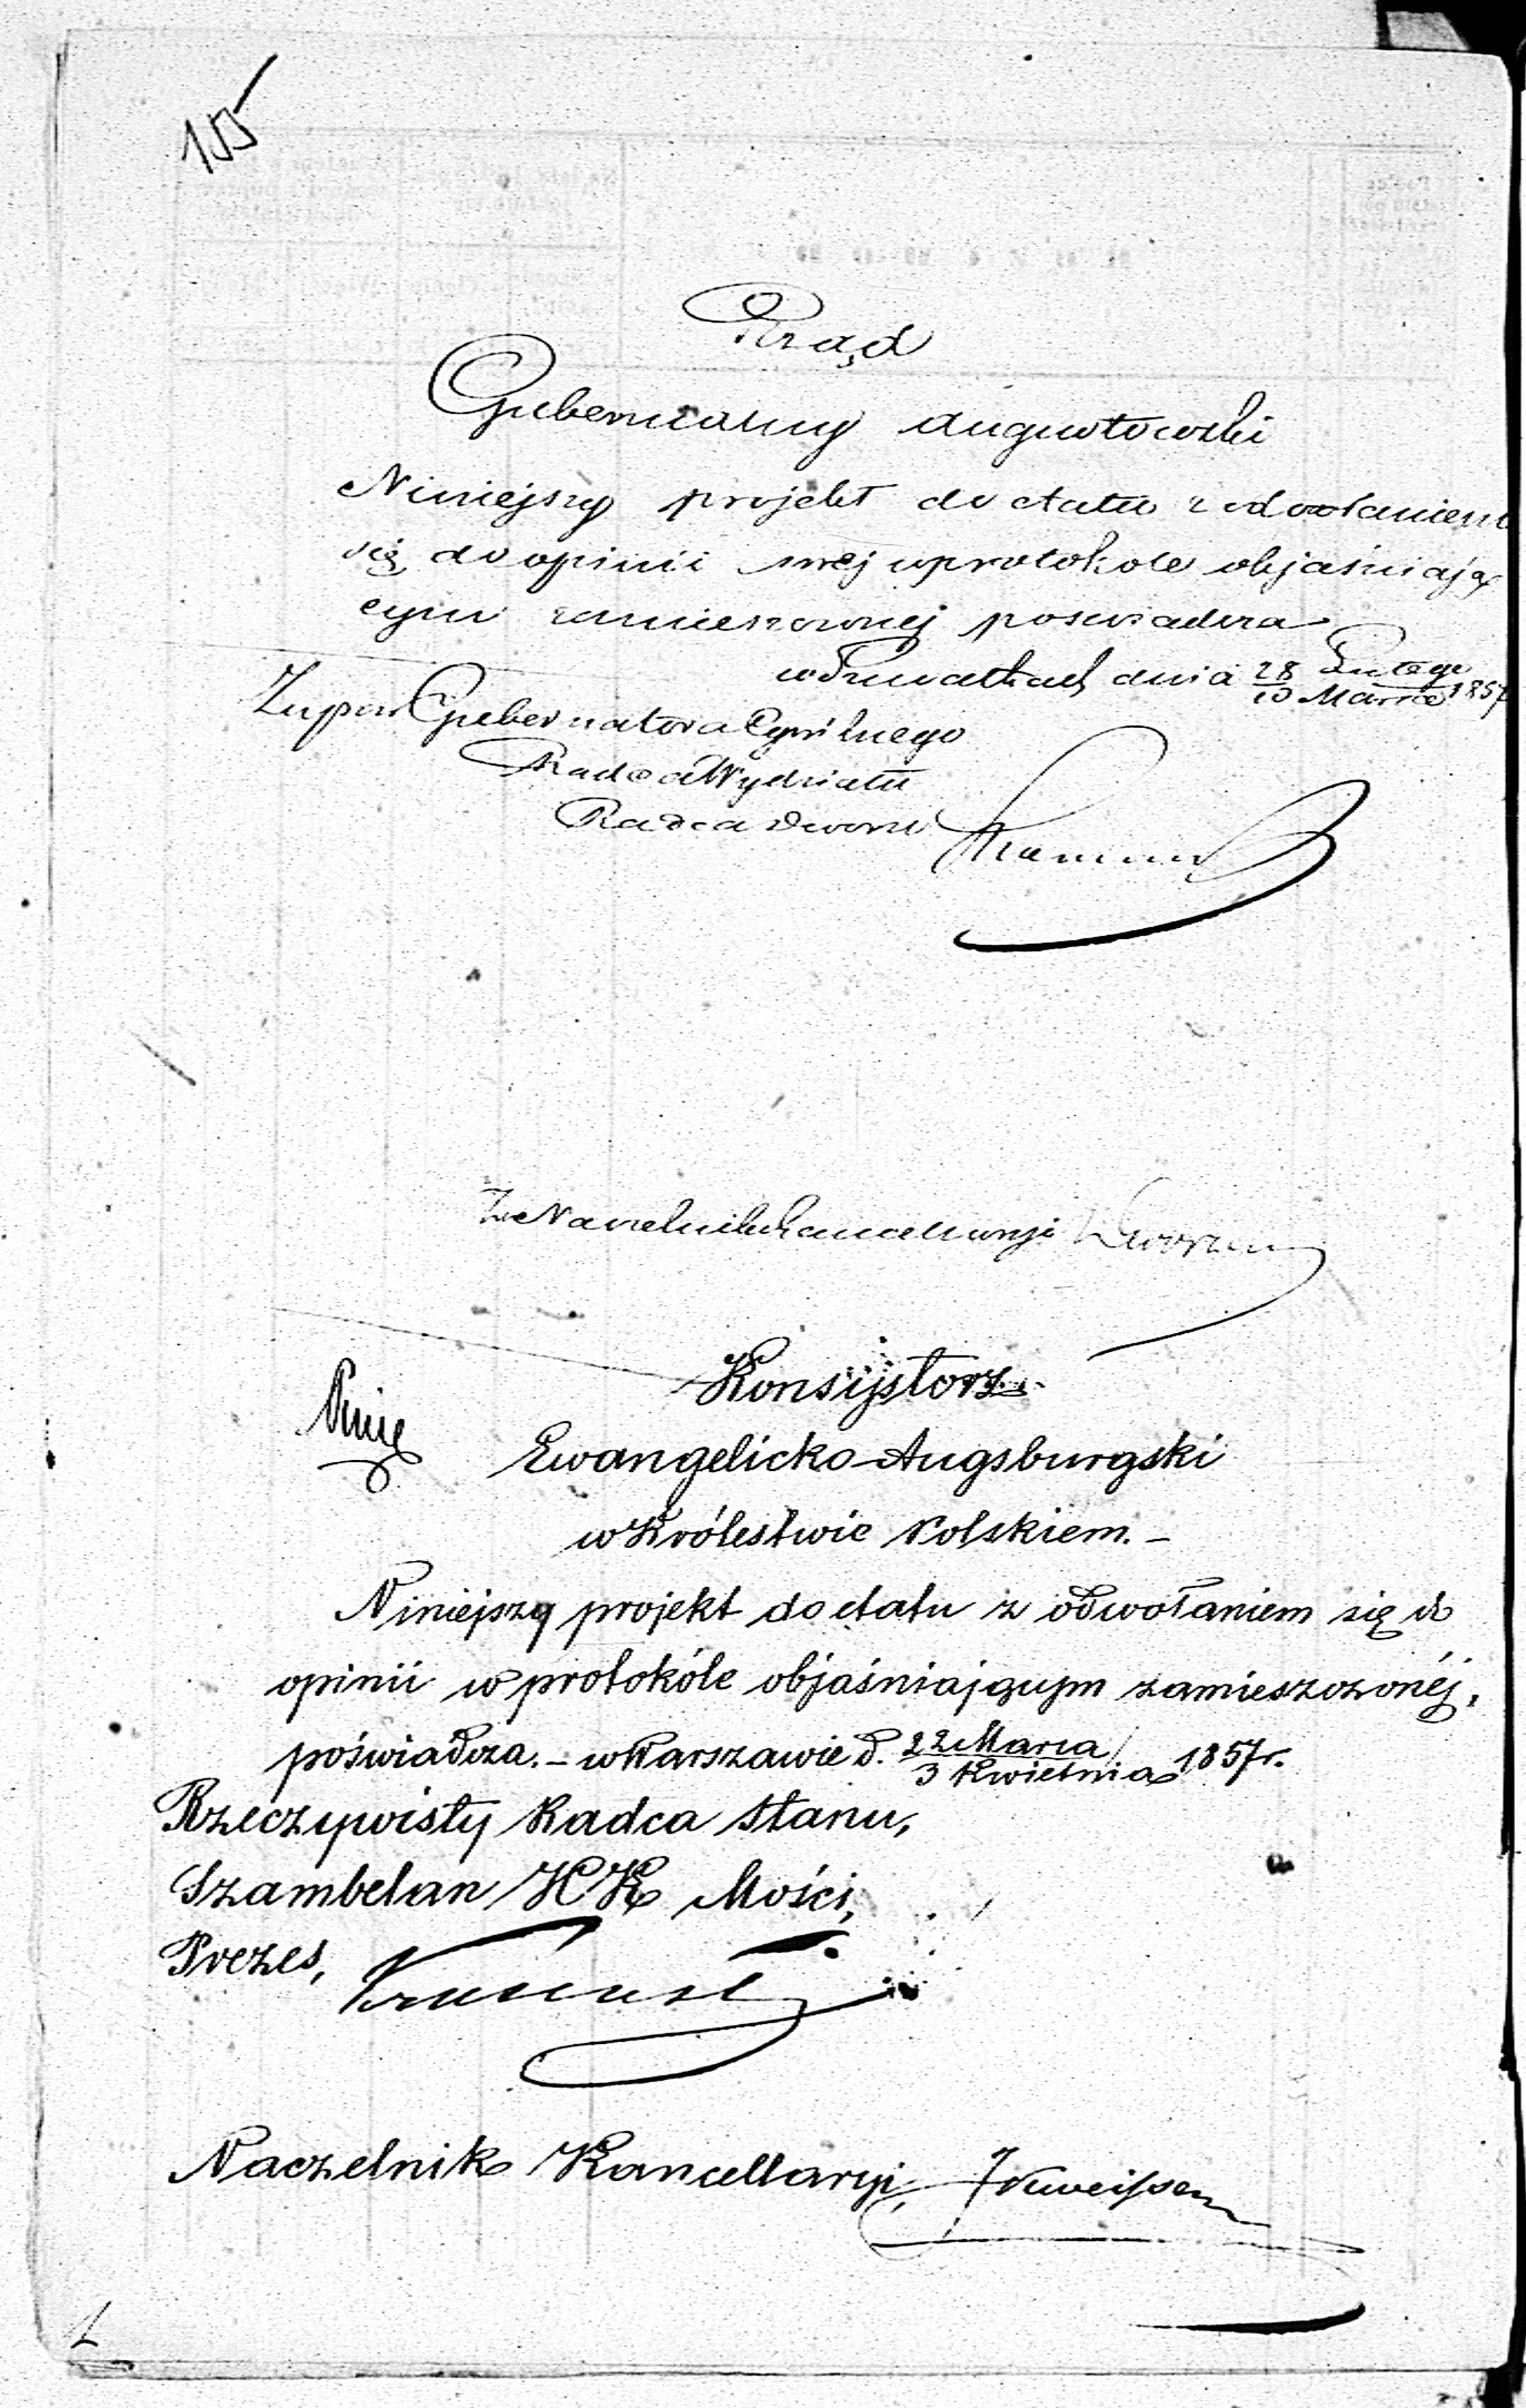 155
Rząd
Gubernialny Augustowski
Niniejszy projekt do etatu z odwołaniem
się do opinii swej w protokole objaśniają
cym zamieszczonej poświadcza
w Suwałkach dnia 28 Lutego / 10 Marca 1857
Gubernatora Cywilnego
Radca Wydziału
Radca Dworu
Naczelnik Kancellaryi
Konsystorz
Ewangelicko-Augsburgski
w Królestwie Polskiem. -
Niniejszy projekt do etatu z odwołaniem się do
opinii w protokóle objaśniającym zamieszczonéj,
poświadcza. - w Warszawie d. 22 Marca / 3 Kwietnia 1857 r.
Rzeczywisty Radca Stanu,
Szambelan JCK Mości,
Prezes,
Naczelnik Kancellaryi,